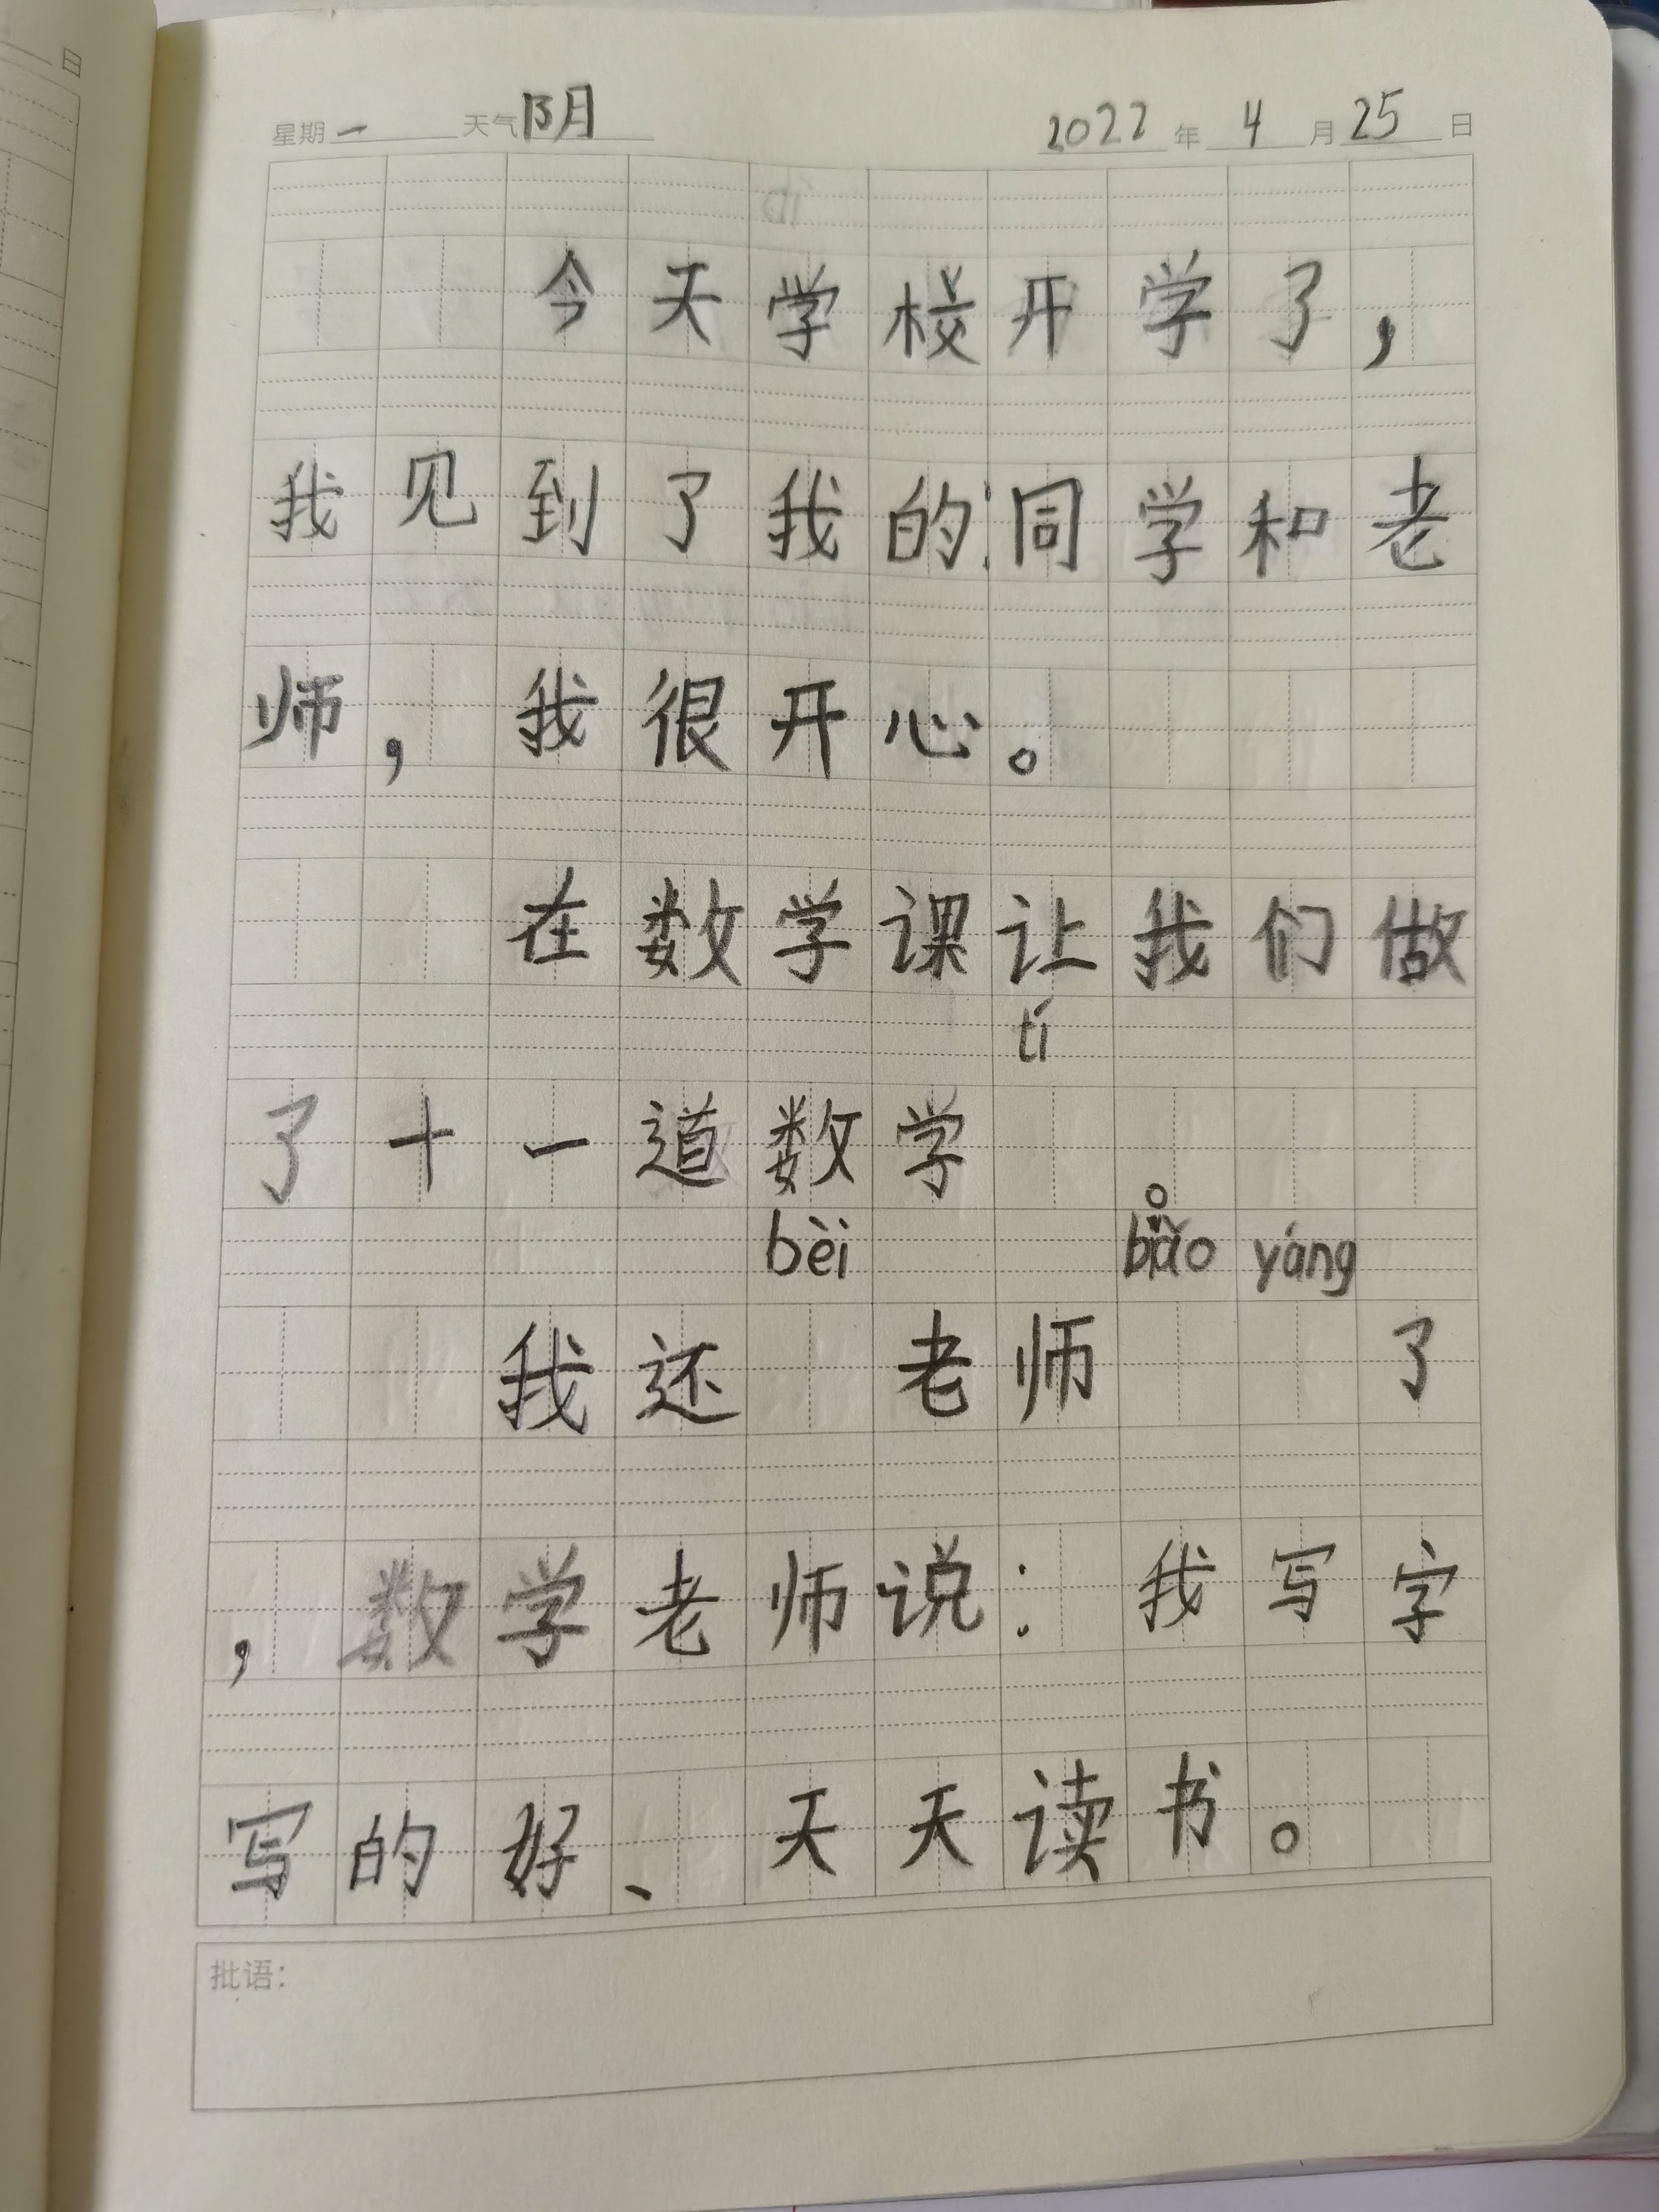 日
星期一 天气阴 2022年4月25日
今天学校开学了，
我见到了我的同学和老
师，我很开心。
在数学课让我们做
tí
了十一道数学
bèi bǎo yáng
我还 老师 了
，数学老师说：我写字
写的好、天天读书。
批语：